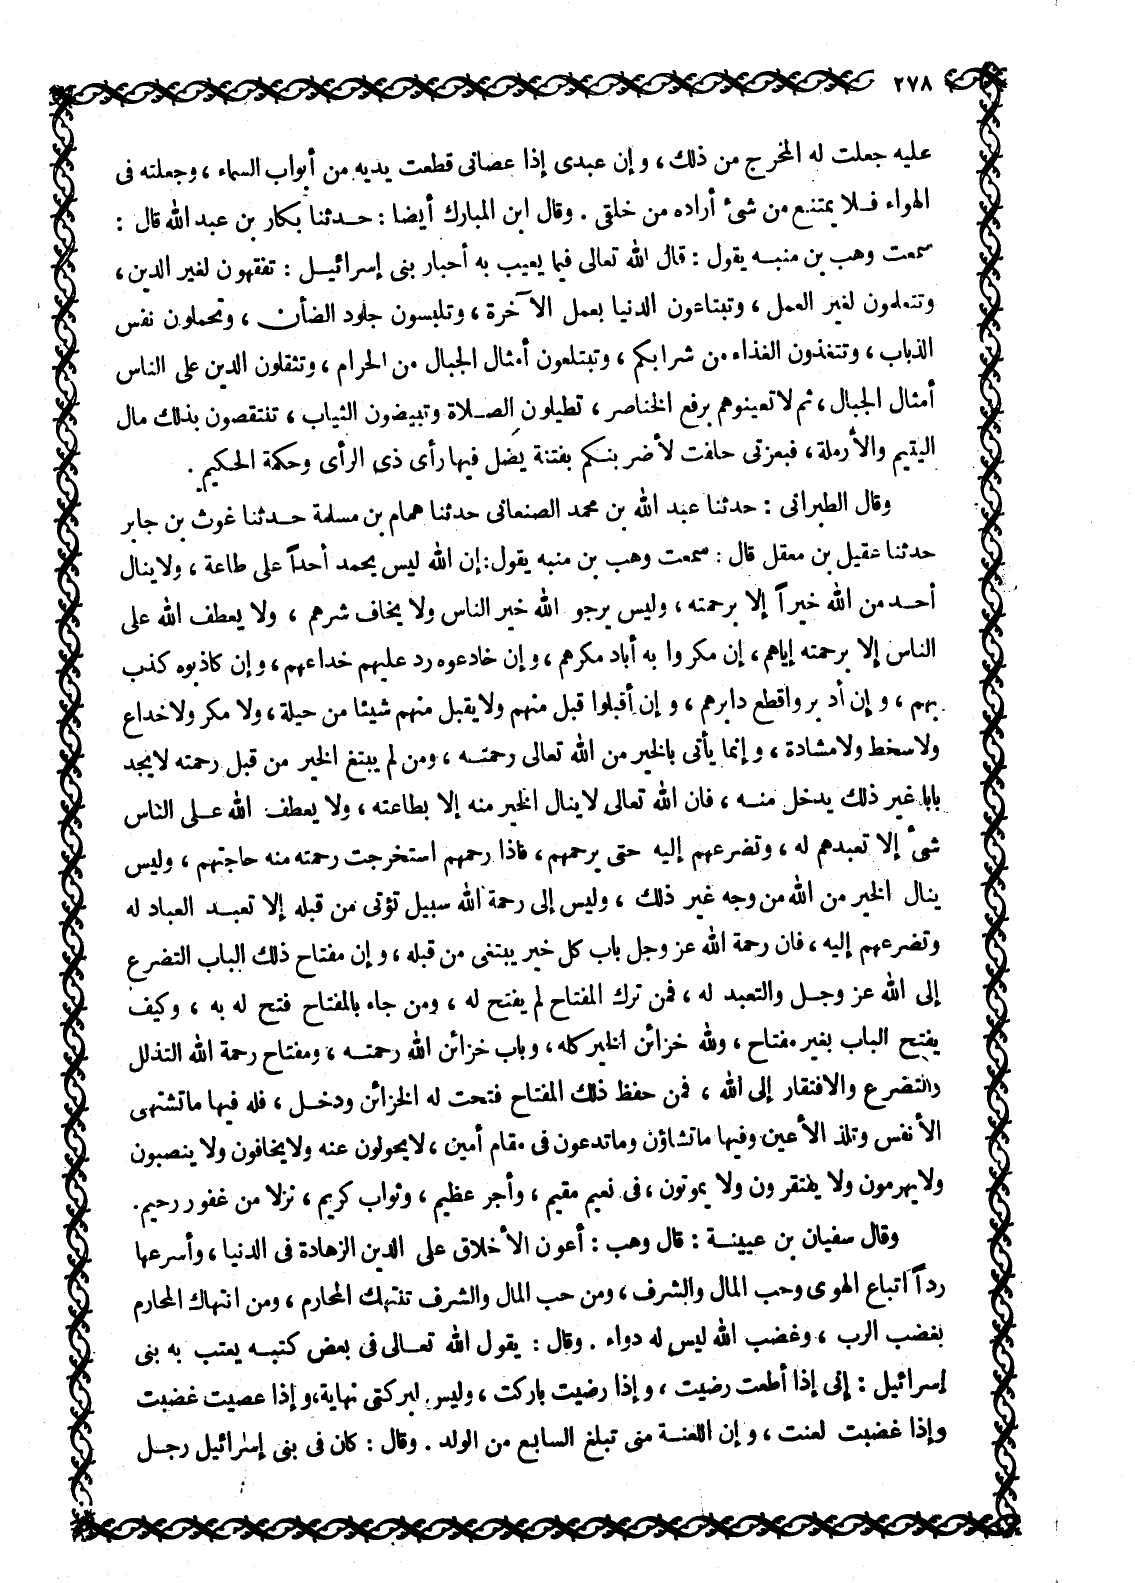 ٢٧٨
عليه جعلت له المخرج من ذلك ، و إن عبدى إذا عصانى قطعت يديه من أبواب السماء ، وجعلته فى
الهواء فلا يمتنع من شئ أراده من خلقى . وقال ابن المبارك أيضا : حدثنا بكار بن عبد الله قال :
سمعت وهب بن منبه يقول : قال الله تعالى فيما يعيب به أحبار بنى إسرائيل : تفقهون لغير الدين ،
وتتعلمون لغير العمل ، وتبتاعون الدنيا بعمل الآخرة ، وتلبسون جلود الضأن ، وتحملون نفس
الذباب ، وتتغذون الغذاء من شرابكم ، وتبتلعون أمثال الجبال من الحرام ، وتثقلون الدين على الناس
أمثال الجبال ، ثم لا تعينوهم برفع الخناصر ، تطيلون الصلاة وتبيضون الثياب ، تنتقصون بذلك مال
اليتيم والأرملة ، فبعزتى حلفت لأضربنكم بفتنة يضل فيها رأى ذى الرأى وحكمة الحكيم .
وقال الطبرانى : حدثنا عبد الله بن محمد الصنعانى حدثنا همام بن مسلمة حدثنا غوث بن جابر
حدثنا عقيل بن معقل قال : سمعت وهب بن منبه يقول : إن الله ليس يحمد أحداً على طاعة ، ولا ينال
أحد من الله خيراً إلا برحمته ، وليس يرجو الله خير الناس ولا يخاف شرهم ، ولا يعطف الله على
الناس إلا برحمته إياهم ، إن مكروا به أباد مكرهم ، و إن خادعوه رد عليهم خداعهم ، و إن كاذبوه كذب
بهم ، و إن أدبروا قطع دابرهم ، و إن أقبلوا قبل منهم ولا يقبل منهم شيئا من حيلة ، ولا مكر ولا خداع
ولا سخط ولا مشادة ، و إنما يأتى بالخير من الله تعالى رحمته ، ومن لم يبتغ الخير من قبل رحمته لا يجد
بابا غير ذلك يدخل منه ، فان الله تعالى لا ينال الخير منه إلا بطاعته ، ولا يعطف الله على الناس
شئ إلا تعبدهم له ، وتضرعهم إليه حتى يرحمهم ، فاذا رحمهم استخرجت رحمته منه حاجتهم ، وليس
ينال الخير من الله من وجه غير ذلك ، وليس إلى رحمة الله سبيل تؤتى من قبله إلا تعبد العباد له
وتضرعهم إليه ، فان رحمة الله عز وجل باب كل خير يبتغى من قبله ، و إن مفتاح ذلك الباب التضرع
إلى الله عز وجل والتعبد له ، فمن ترك المفتاح لم يفتح له ، ومن جاء بالمفتاح فتح له به ، وكيف
يفتح الباب بغير مفتاح ، ولله خزائن الخير كله ، وباب خزائن الله رحمته ، ومفتاح رحمة الله التذلل
والتضرع والافتقار إلى الله ، فمن حفظ ذلك المفتاح فتحت له الخزائن ودخل ، فله فيها ما تشتهى
الأنفس وتلذ الأعين وفيها ما تشاؤن وما تدعون فى مقام أمين ، لا يحولون عنه ولا يخافون ولا ينصبون
ولا يهرمون ولا يفتقرون ولا يموتون ، فى نعيم مقيم ، وأجر عظيم ، وثواب كريم ، نزلا من غفور رحيم .
وقال سفيان بن عيينة : قال وهب : أعون الأخلاق على الدين الزهادة فى الدنيا ، وأسرعها
رداً اتباع الهوى وحب المال والشرف ، ومن حب المال والشرف تنتهك المحارم ، ومن انتهاك المحارم
بغضب الرب ، وغضب الله ليس له دواء . وقال : يقول الله تعالى فى بعض كتبه يعتب به بنى
إسرائيل : إنى إذا أطعت رضيت ، و إذا رضيت باركت ، وليس لبركتى نهاية ، و إذا عصيت غضبت
وإذا غضبت لعنت ، و إن اللعنة منى تبلغ السابع من الولد . وقال : كان فى بنى إسرائيل رجل